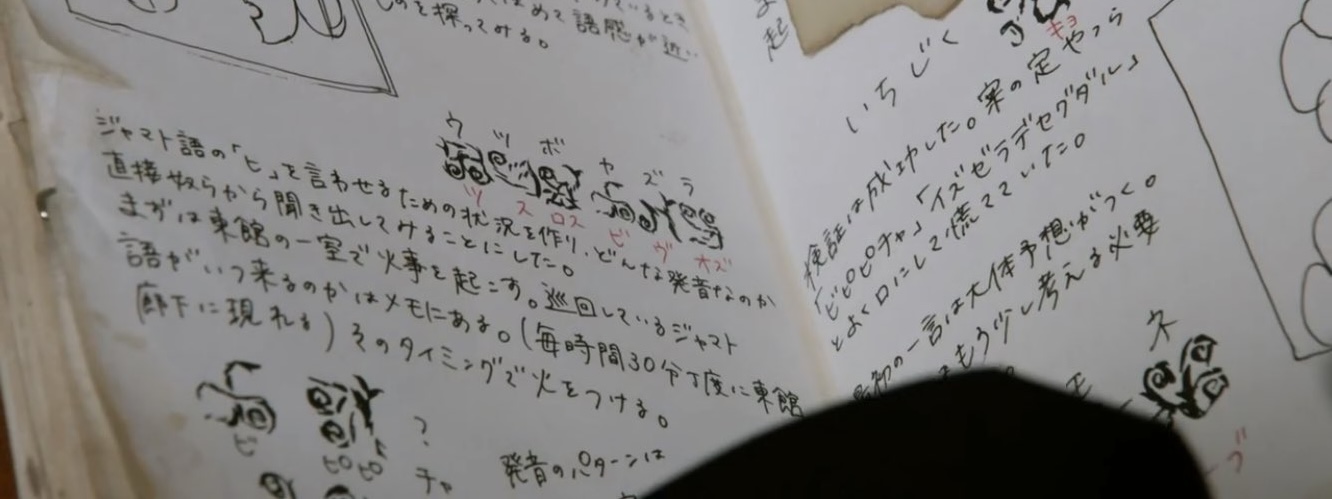 語感が近い
ものを探ってみる。
ウツボ
カズラ
ツ ス ロス ビ ヴ オズ
ジャマト語の「ヒ」を言わせるための状況を作り、どんな発音なのか
直接奴らから聞き出してみることにした。
まずは東館の一室で火事を起こす。巡回しているジャマト
語がいつ来るのかはメモにある。(毎時間30分丁度に東館
廊下に現れる)そのタイミングで火をつける。
ビ ピロピロ ?
チャ
発音のパターンは
起
キョ
いちじく
検証は成功した。案の定やつら
「ビピピチャ」「イズゼラデセグダル」
とよく口にして慌てていた。
の一言は大体予想がつく。
もう少し考える必要
ヌ
ブ